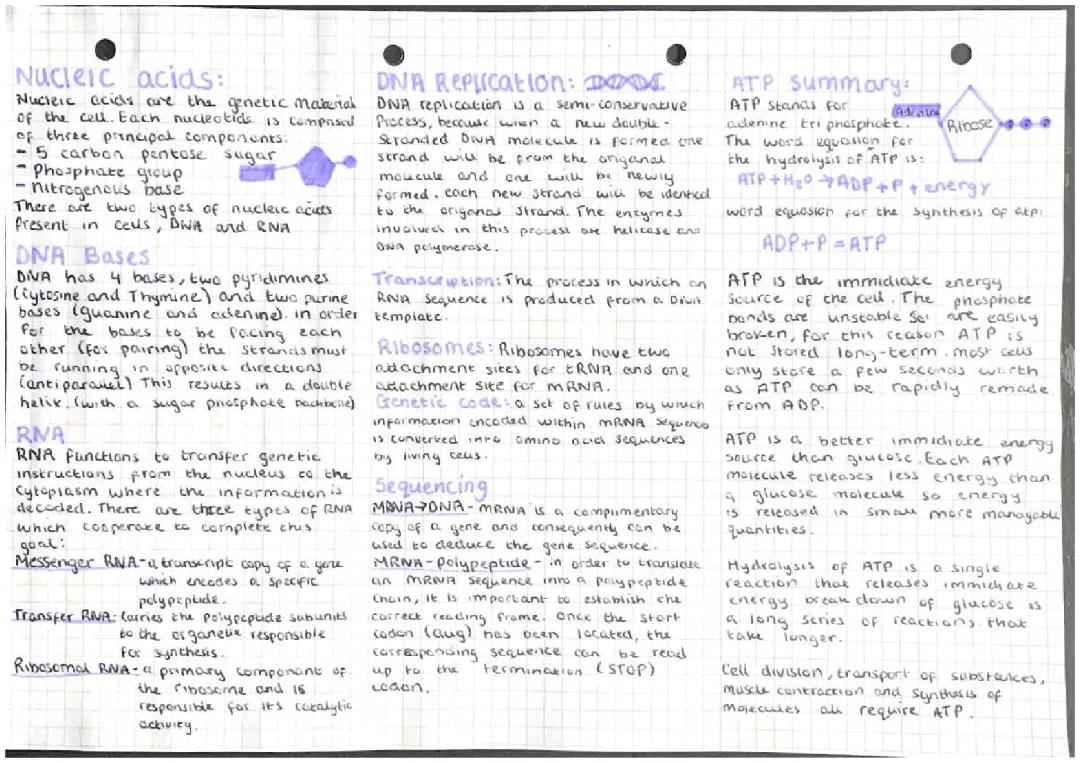 Nucleic acids:
Nucleic acids are the genetic material
of the cell. Each nucleotide is comprised
of three principal components:
- 5 carbon pentose sugar
- Phosphate group
- nitrogenous base
There are two types of nucleic acids
Present in cells, DNA and RNA
DNA Bases
DNA has 4 bases, two pyridimines
(Cytosine and Thymine) and two purine
bases (guanine and adenine). in order
for the bases to be facing each
other (for pairing) the strands must
be running in opposite directions
(antiparallel) This results in a double
helix. (with a sugar phosphate backbone)
RNA
RNA functions to transfer genetic
instructions from the nucleus to the
Cytoplasm where the information is
decoded. There are three types of RNA
which cooperate to complete this
goal:
Messenger RNA - a transcript copy of a gene
which encodes a specific
polypeptide.
Transfer RNA: Carries the polypeptide subunits
to the organelle responsible
for synthesis.
Ribosomal RNA - a primary component of
the ribosome and is
responsible for its catalytic
activity.
DNA Replication:
DNA replication is a semi-conservative
Process, because when a new double-
Stranded DNA molecule is formed one
strand will be from the origanal
molecule and one will be newly
formed. each new strand will be identical
to the origanal strand. The enzymes
involved in this process are helicase and
DNA polymerase.
Transcription: The process in which an
RNA sequence is produced from a DNA
template.
Ribosomes: Ribosomes have two
attachment sites for tRNA and one
attachment site for mRNA.
Genetic code: a set of rules by which
information encoded within mRNA sequences
is converted into amino acid sequences
by living cells.
Sequencing
MRNA→DNA - mRNA is a complimentary
copy of a gene and consequently can be
used to deduce the gene sequence.
MRNA-Polypeptide - in order to translate
an mRNA sequence into a polypeptide
chain, it is important to establish the
correct reading frame. Once the start
codon (aug) has been located, the
corresponding sequence can be read
up to the termination (STOP)
codon.
ATP summary:
ATP stands for
adenine tri phosphate.
Adenine
Ribose
The word equation for
the hydrolysis of ATP is:
ATP + H₂O → ADP + P + energy
word equasion for the synthesis of atp:
ADP + P = ATP
ATP is the immidiate energy
source of the cell. The phosphate
bonds are unstable so are easily
broken, for this reason ATP is
not stored long-term. most cells
only store a few seconds worth
as ATP can be rapidly remade
from ADP.
ATP is a better immidiate energy
source than glucose. Each ATP
molecule releases less energy than
a glucose molecule so energy
is released in small more managable
quantities.
Hydrolysis of ATP is a single
reaction that releases immidiate
energy break down of glucose is
a long series of reactions that
take longer.
Cell division, transport of substances,
muscle contraction and synthesis of
molecules all require ATP.